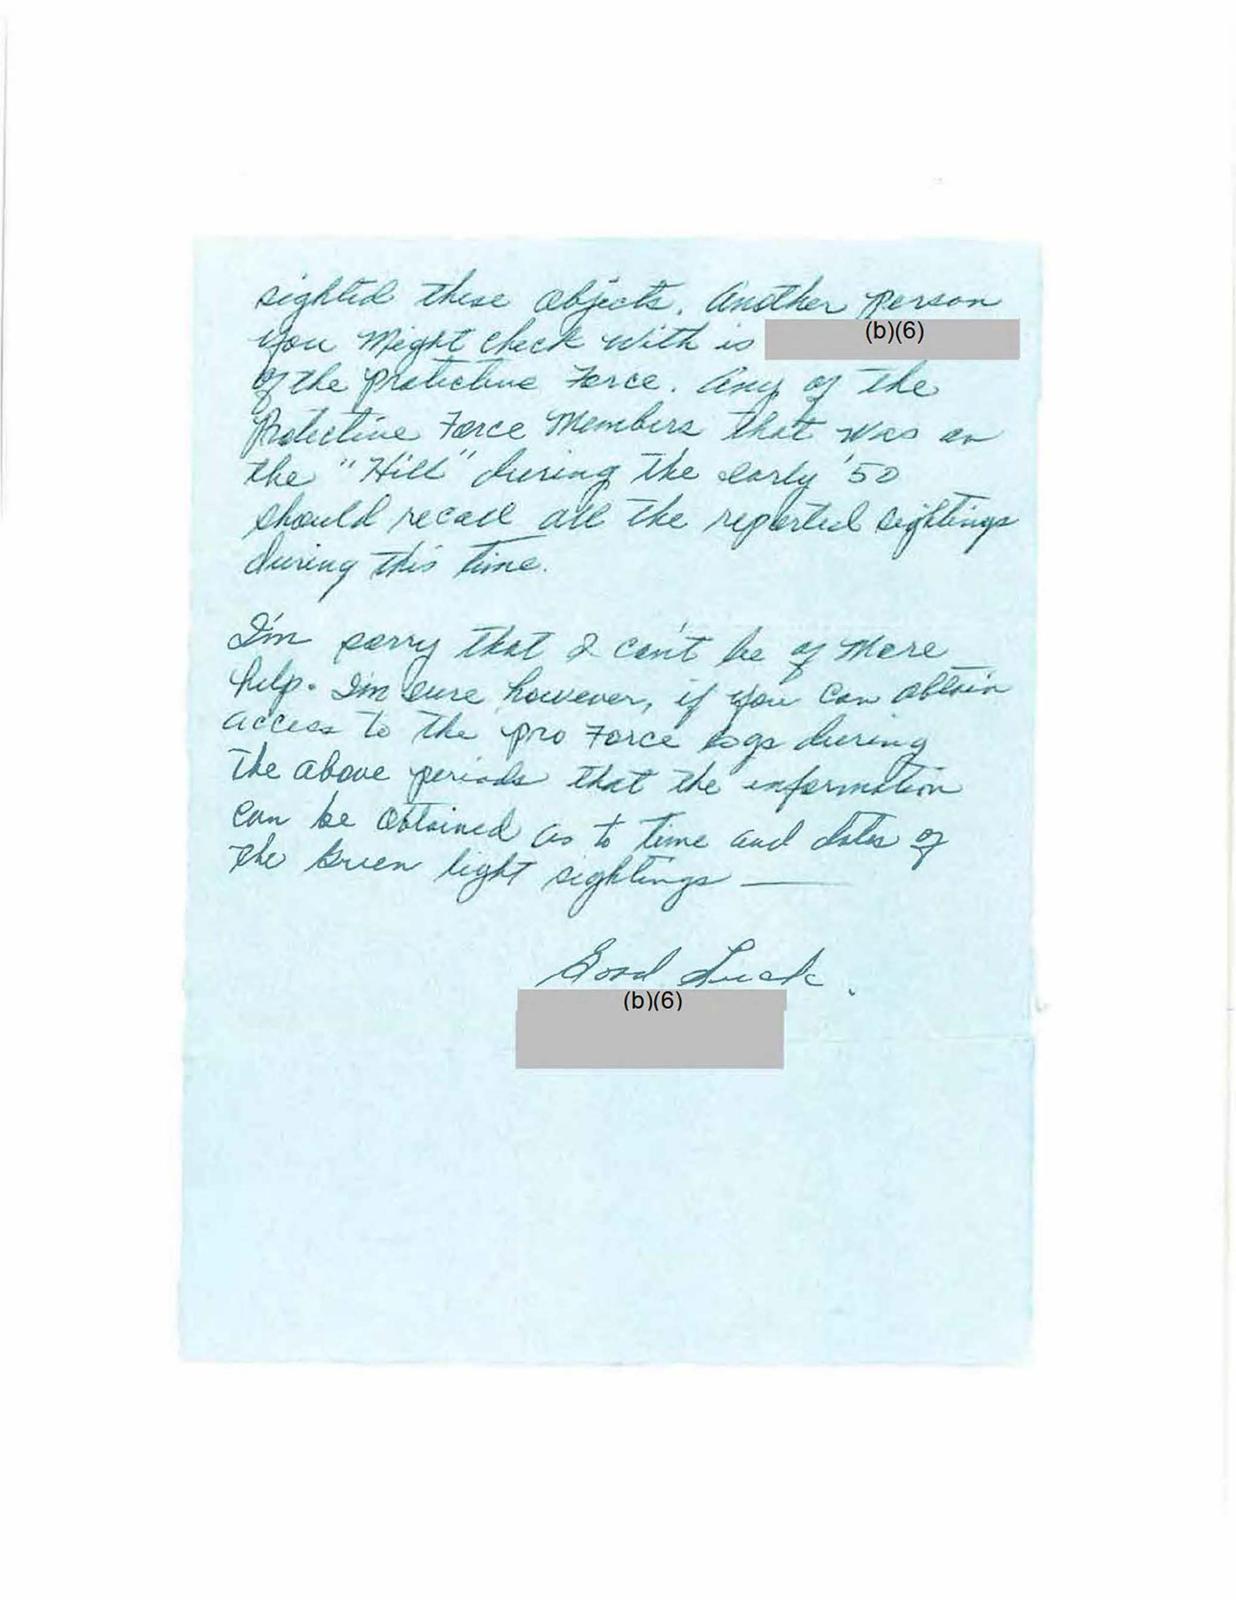 sighted these objects. Another person
you Might check with is (b)(6)
of the protective Force. Any of the
Protective Force Members that was on
the "Hill" during the early '50
should recall all the reported sightings
during this time.
I'm sorry that I can't be of More
help. I'm sure however, if you can obtain
access to the pro Force logs during
the above periods that the information
can be obtained as to time and dates of
the Green light sightings ———
Good Luck.
(b)(6)